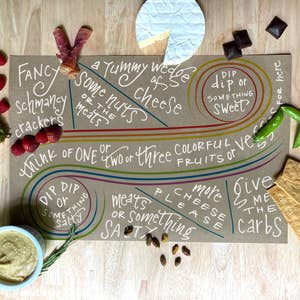 FANCY
schmancy
crackers
some nuts
OR THE
meats
a yummy wedge
of
cheese
DIP
dip or
SOMETHING
SWEET
FOR HERE
think of ONE or two or three COLORFUL VEGS
FRUITS or
DIP DIP
or
SOMETHING
salty
meats
OR something
SALTY
more
CHEESE
PLEASE
give
ME
THE
carbs